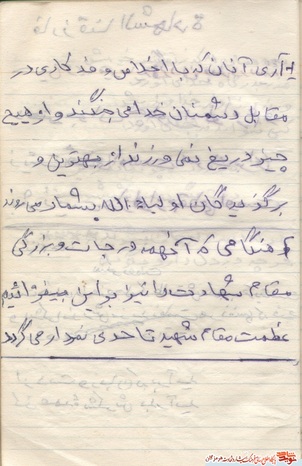 آری آنان که با اخلاص و فداکاری در
مقابل دشمنان خدا می جنگند و از هیچ
چیز دریغ نمی ورزند از بهترین و
برگزیدگان اولیاء الله بشمار می روند
هنگامی که آنهمه درجات و بزرگی
مقام شهادت را نیز بر این بیفزائیم
عظمت مقام شهید تا حدی نمودار می گردد